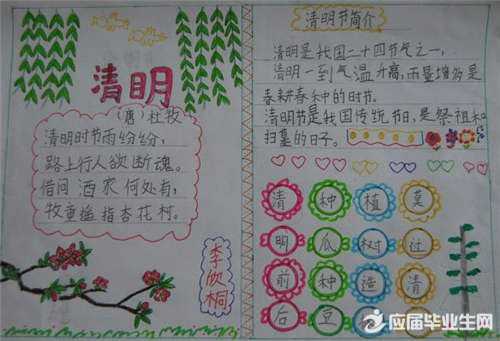 清明
(唐)杜牧
清明时节雨纷纷,
路上行人欲断魂。
借问酒家何处有,
牧童遥指杏花村。
李欣桐
清明节简介
清明是我国二十四节气之一,
清明一到气温升高,雨量增多是
春耕春种的时节。
清明节是我国传统节日,是祭祖和
扫墓的日子。
清 种 植
明 瓜 树 过
前 种 造 清
后 豆
应届毕业生网